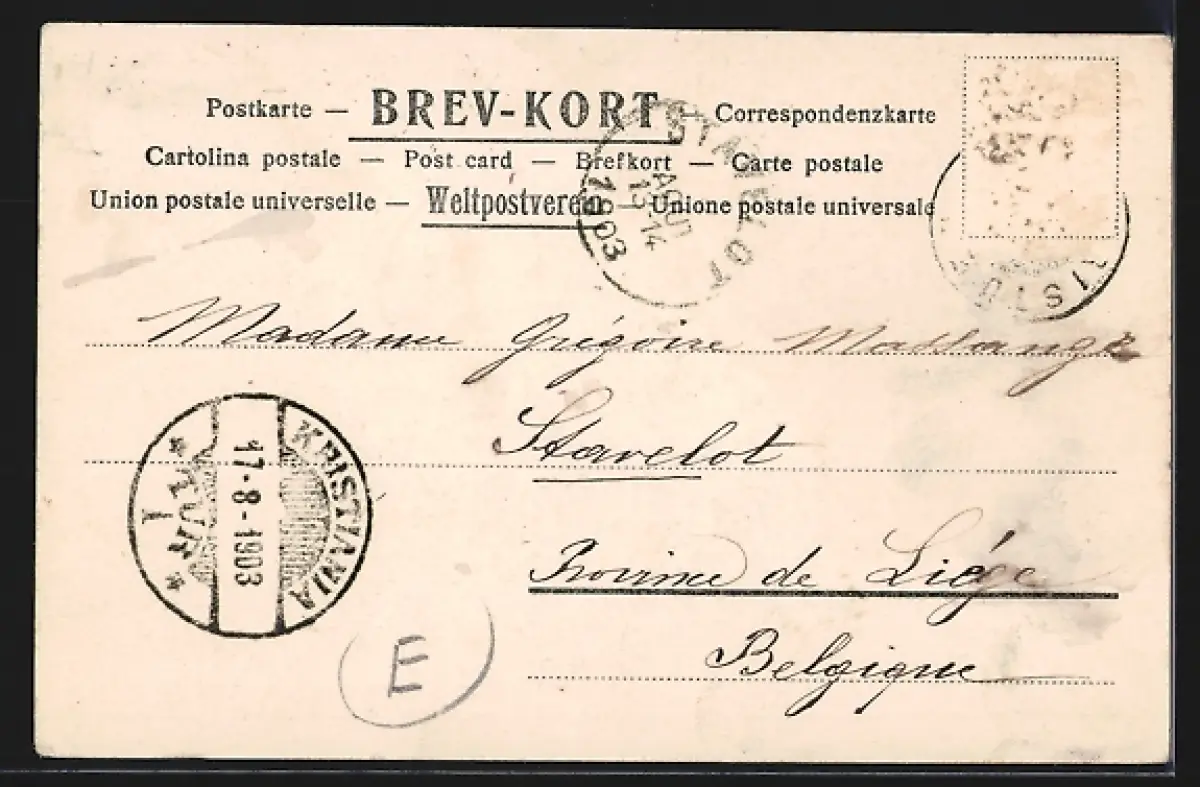 Postkarte — BREV-KORT — Correspondenzkarte
Cartolina postale — Post card — Brefkort — Carte postale
Union postale universelle — Weltpostverein — Unione postale universale
STAVELOT
AOUT
1903
Madame Grégoire Massange
Stavelot
KRISTIANIA
17-8-1903
* TUR *
I
Province de Liége
Belgique
E